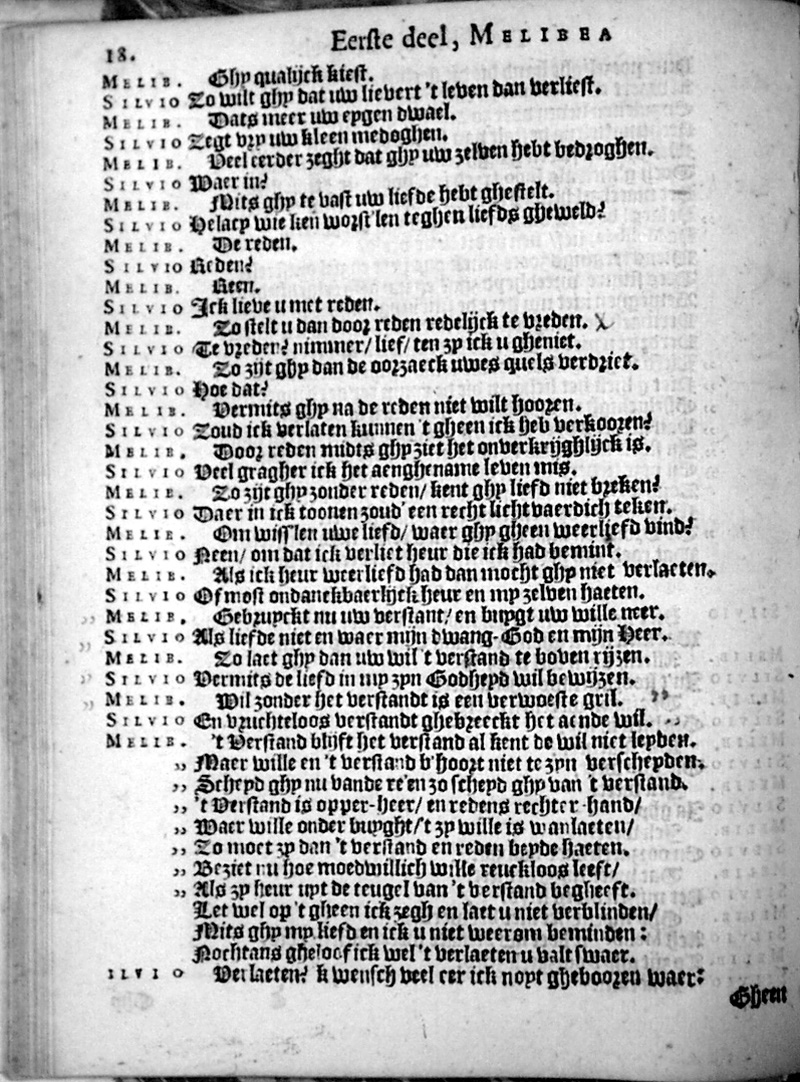 18. Eerste deel, MELIBEA
MELIB. Ghy qualijck kiest.
SILVIO Zo wilt ghy dat uw lievert 't leven dan verliest.
MELIB. Dats meer uw eygen dwael.
SILVIO Zegt vry uw kleen medoghen.
MELIB. Veel eerder zeght dat ghy uw zelven hebt bedroghen.
SILVIO Waer in?
MELIB. Mits ghy te vast uw liefde hebt ghestelt.
SILVIO Helacy wie ken worst'len teghen liefds gheweld?
MELIB. De reden.
SILVIO Reden?
MELIB. Reen.
SILVIO Ick lieve u met reden.
MELIB. Zo stelt u dan door reden redelijck te vreden.
SILVIO Te vreden? nimmer/ lief/ ten zy ick u gheniet.
MELIB. Zo zijt ghy dan de oorzaeck uwes quels verdriet.
SILVIO Hoe dat?
MELIB. Vermits ghy na de reden niet wilt hooren.
SILVIO Zoud ick verlaten kunnen 't gheen ick heb verkooren?
MELIB. Door reden midts ghy ziet het onverkrijghlijck is.
SILVIO Veel gragher ick het aenghename leven mis.
MELIB. Zo zijt ghy zonder reden/ kent ghy liefd niet breken?
SILVIO Daer in ick toonen zoud' een recht lichtvaerdich teken.
MELIB. Om wiss'len uwe liefd/ waer ghy gheen weerliefd vind?
SILVIO Neen/ om dat ick verliet heur die ick had bemint.
MELIB. Als ick heur weerliefd had dan mocht ghy niet verlaeten.
SILVIO Of most ondanckbaerlijck heur en my zelven haeten.
,, MELIB. Gebruyckt nu uw verstant/ en buygt uw wille neer.
,, SILVIO Als liefde niet en waer mijn dwang-God en mijn Heer.
MELIB. Zo laet ghy dan uw wil 't verstand te boven rijzen.
,, SILVIO Vermits de liefd in my zyn Godheyd wil bewijzen.
,, MELIB. Wil zonder het verstandt is een verwoeste gril. ,,
SILVIO En vruchteloos verstandt ghebreeckt het aende wil. ,,
MELIB. 't Verstand blijft het verstand al kent de wil niet leyden.
,, Maer wille en 't verstand b'hoort niet te zyn verscheyden.
,, Scheyd ghy nu vande re'en zo scheyd ghy van 't verstand.
,, 't Verstand is opper-heer/ en redens rechter-hand/
,, Waer wille onder buyght/ 't zy wille is wanlaeten/
,, Zo moet zy dan 't verstand en reden beyde haeten.
,, Beziet nu hoe moedwillich wille reuckloos leeft/
,, Als zy heur uyt de teugel van 't verstand begheeft.
Let wel op 't gheen ick zegh en laet u niet verblinden/
Mits ghy my liefd en ick u niet weerom beminden:
Nochtans gheloof ick wel 't verlaeten u valt swaer.
ILVIO Verlaeten? k wensch veel eer ick noyt ghebooren waer:
Gheen